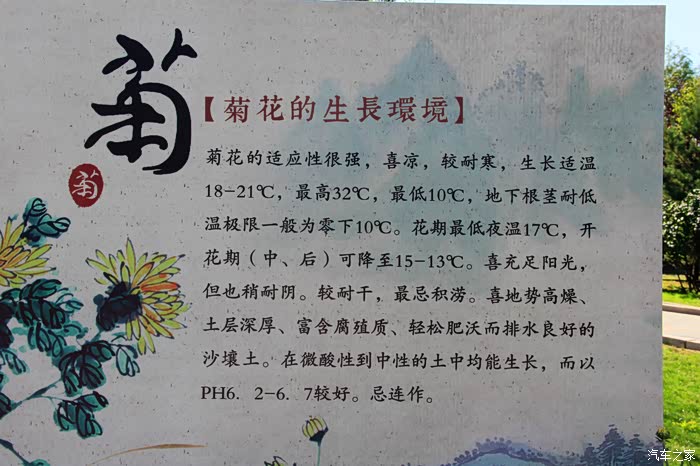 菊
菊
【菊花的生長環境】
菊花的适应性很强，喜凉，较耐寒，生长适温
18-21℃，最高32℃，最低10℃，地下根茎耐低
温极限一般为零下10℃。花期最低夜温17℃，开
花期（中、后）可降至15-13℃。喜充足阳光，
但也稍耐阴。较耐干，最忌积涝。喜地势高燥、
土层深厚、富含腐殖质、轻松肥沃而排水良好的
沙壤土。在微酸性到中性的土中均能生长，而以
PH6．2-6．7较好。忌连作。
汽车之家